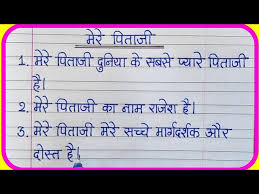 मेरे पिताजी
1. मेरे पिताजी दुनिया के सबसे प्यारे पिताजी
है।
2. मेरे पिताजी का नाम राजेश है।
3. मेरे पिताजी मेरे सच्चे मार्गदर्शक और
दोस्त है।